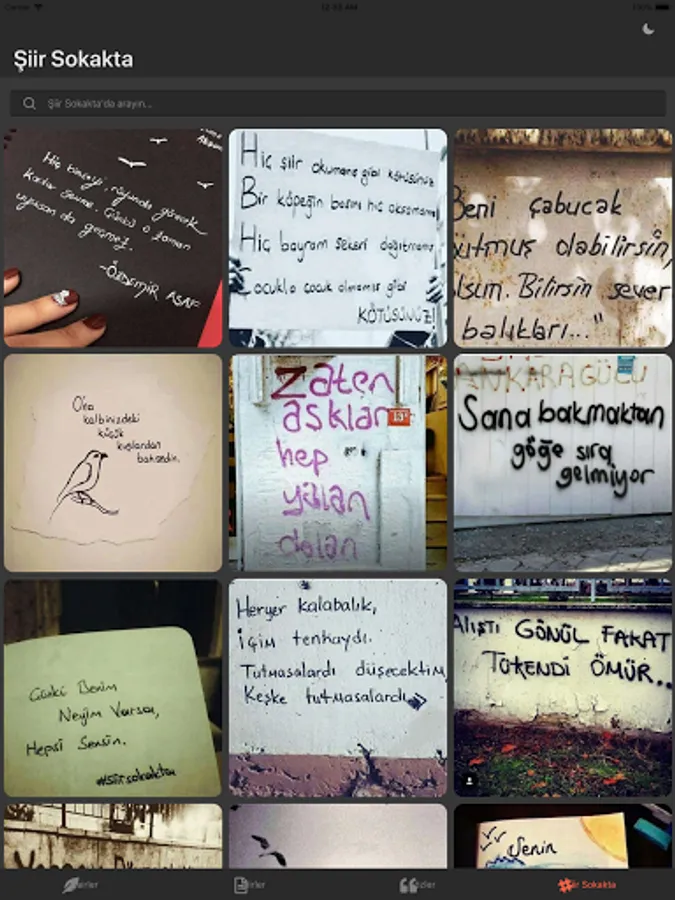 12:53 AM
Şiir Sokakta
Şiir Sokakta'da arayın...
Hiç kimseyi, rüyanda görecek
kadar sevme. Çünkü o zaman
uyusan da geçmez.
-ÖZDEMİR ASAF
Hiç şiir okumamış gibi kötüsünüz
Bir köpeğin başını hiç okşamamış
Hiç bayram şekeri dağıtmamış
Çocukla çocuk olmamış gibi
KÖTÜSÜNÜZ!
Beni çabucak
utmuş olabilirsin,
lsun. Bilirsin sever
balıkları..."
Ona
kalbinizdeki
küçük
kuşlardan
bahsedin.
Zaten
aşklar
hep
yalan
dolan
ANKARAGÜCÜ
Sana bakmaktan
göğe sıra
gelmiyor
Çünkü Benim
Neyim Varsa,
Hepsi Sensin.
#şiirsokakta
Heryer kalabalık,
içim tenhaydı.
Tutmasalardı düşecektim,
Keşke tutmasalardı
ALIŞTI GÖNÜL FAKAT
TÜKENDİ ÖMÜR..
Senin
ir Sokakta